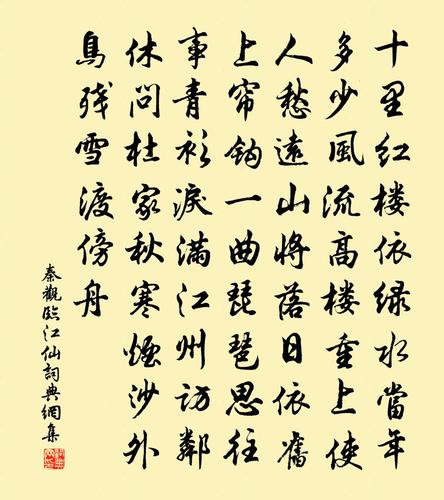 十里红楼依绿水當年
多少風流高楼重上使
人愁遠山将落日依舊
上帘钩一曲琵琶思往
事青衫淚满江州訪鄰
休問杜家秋寒煙沙外
鳥残雪渡傍舟
秦觀臨江仙詞典網集